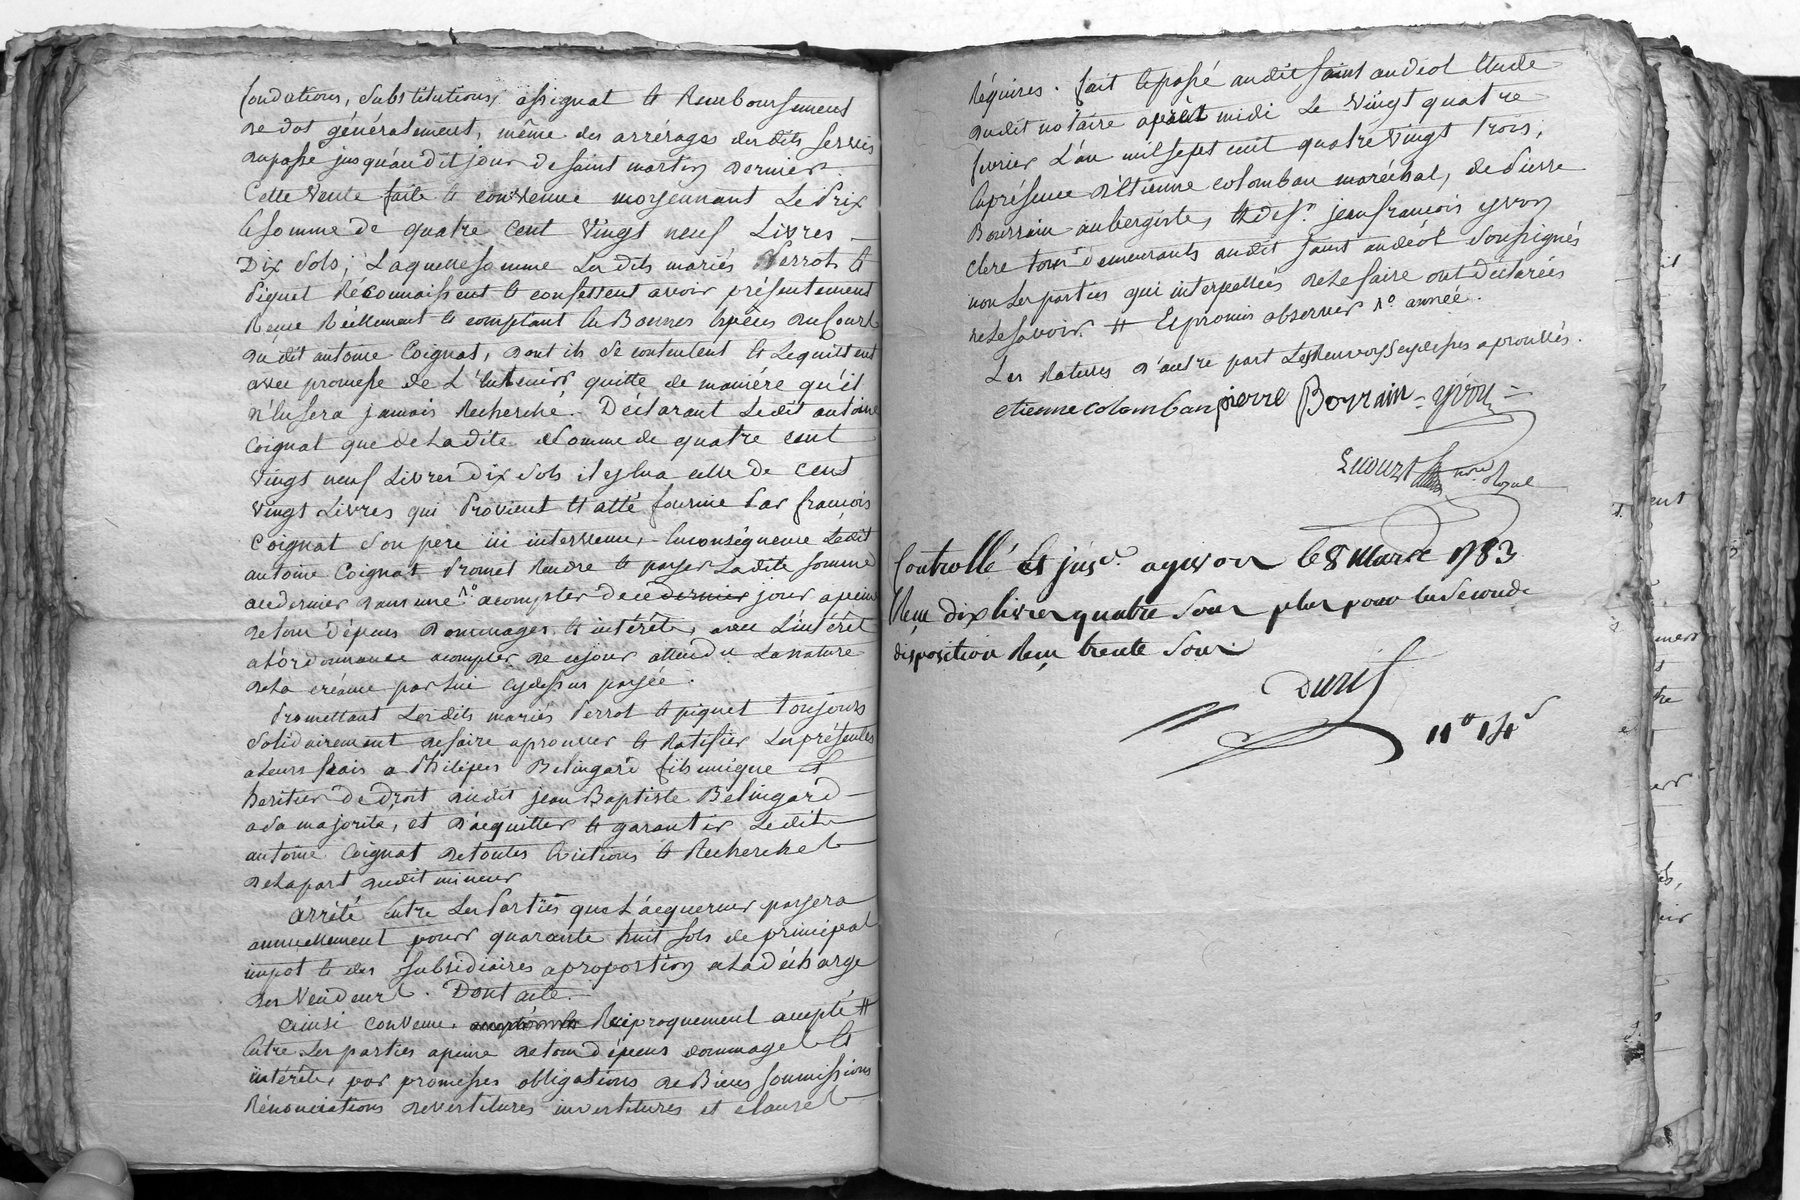 fondations, substitutions, assignat et Remboursement
de dot généralement, même des arrérages des dits servis
du passé jusqu'audit jour de saint martin dernier.
Cette vente faite et convenue moyennant Le Prix
et somme de quatre cent vingt neuf Livres
Dix sols; Laquelle somme Les dits mariés Perrot et
Piquet Réconnaissent et confessent avoir présentement
Reçue Réellement et comptant en Bonnes Espèces du Cours
du dit antoine Coignat, dont ils se contentent et Lequittent
avec promesse de L'en tenir quitte de maniére qu'il
n'en sera jamais Recherché. Déclarant Ledit antoine
Coignat que de Ladite somme de quatre cent
vingt neuf Livres Dix sols il y en a celle de cent
vingt Livres qui Provient et a été fournie Par françois
Coignat son père ici intervenu, En conséquence Ledit
antoine Coignat Promet Rendre et payer Ladite somme
a ce dernier dans une acompter de ce dernier jour a peine
de tous dépens dommages et intérêts, avec L'intérêt
a L'órdonnance acompter de ce jour attendu La nature
de La créance par Lui cy dessus payée.
Promettant Les dits mariés Perrot et piquet toujours
solidairement de faire aprouver et Ratifier Les présentes
a Leurs frais a Philipes Belingard fils unique et
heritier de Droit dudit jean Baptiste Belingard
a sa majorité, et d'acquitter et garantir Ledit
antoine Coignat de toutes Evictions et Recherches
de La part dudit mineur
arrêté Entre Les Parties que L'acquereur payera
annuellement pour quarante huit sols de principal
impot et des subsidiaires a proportion a La décharge
des Vendeurs. Dont acte.
Ainsi convenu, Reciproquement accepté #
Entre Les parties a peine de tous dépens dommages et
intérêts, par promesses obligations de Biens soumissions
Rénonciations devestitures investitures et clauses
Réquises. fait et passé audit saint andéol Etude
dudit notaire après midi Le vingt quatre
fevrier L'an mil sept cent quatre vingt trois,
En présence d'Etienne colomban maréchal, de Pierre
Bourrain aubergiste, et de sr. jean francois yvon
clerc tous demeurants audit saint andéol soussignés
non Les parties qui interpellées de Le faire ont declarées
ne Le savoir. # Et promis observer
Les Ratures d'autre part Les Renvoys cy dessus aprouvés.
etienne colomban pierre Boyrain yvon
Lecourt nre. Royal
Controllé et jns. a givor le 8 Mars 1783
Reçu dix livres quatre sour plus pour la seconde
disposition Reçu trente sour
Duris
11# 14s